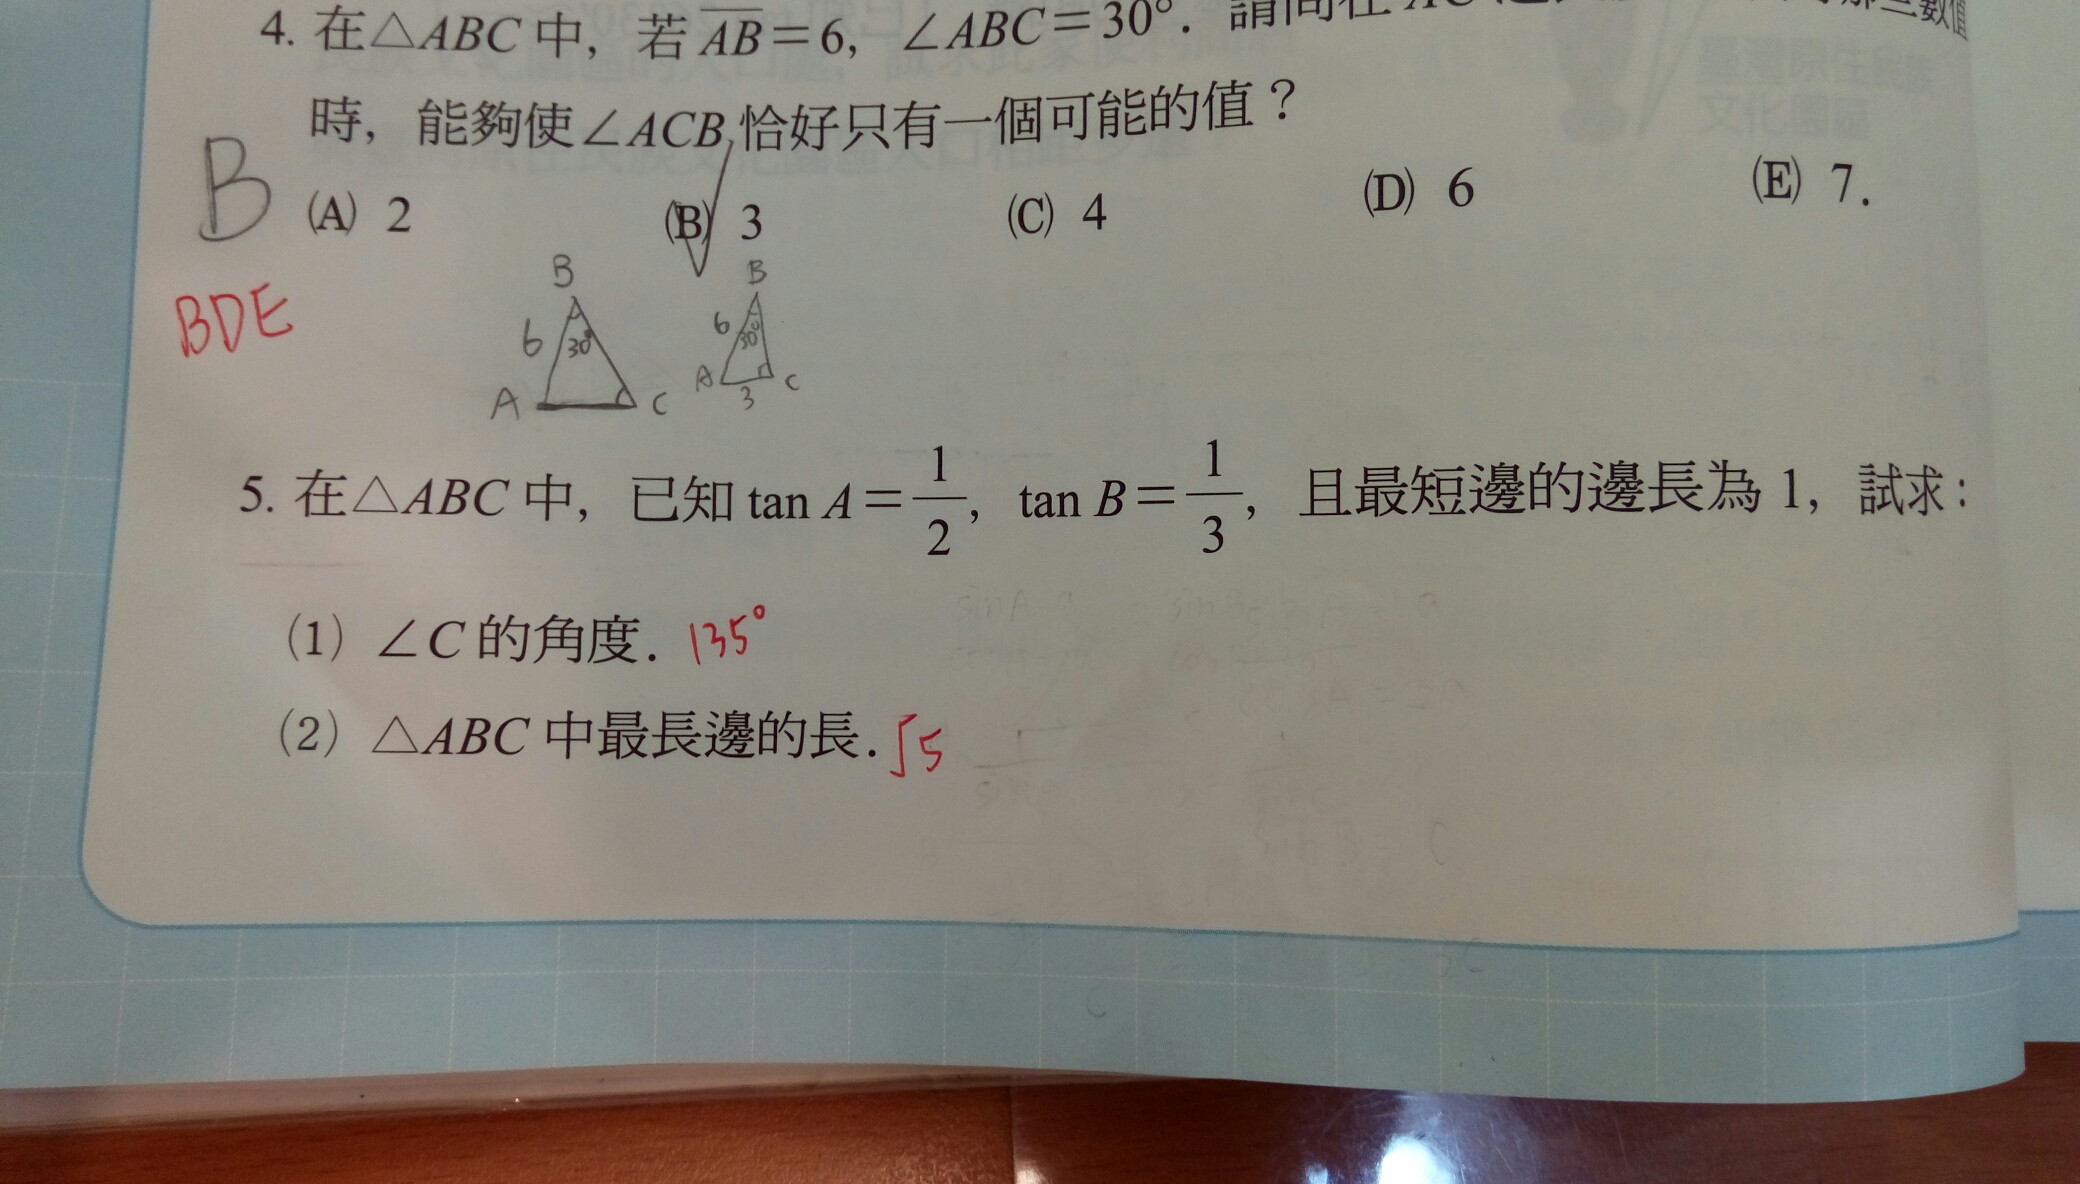 4. 在△ABC中，若 AB＝6，∠ABC＝30°．請問在
時，能夠使∠ACB 恰好只有一個可能的值？
B
(A) 2 (B) 3 (C) 4 (D) 6 (E) 7.
BDE
B 6 30° A C
B 6 30° A 3 C
5. 在△ABC中，已知 tan A＝1/2，tan B＝1/3，且最短邊的邊長為 1，試求：
(1) ∠C 的角度．135°
(2) △ABC 中最長邊的長．√5